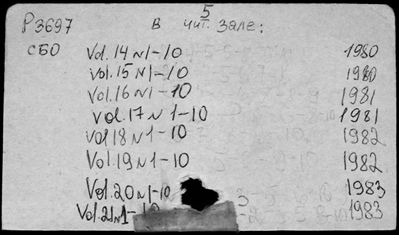 5
Р3697 в чит. зале:
СБО
Vol. 14 N1-10 1980
Vol. 15 N1-10 1980
Vol. 16 N1-10 1981
Vol. 17 N1-10 1981
Vol 18 N1-10 1982
Vol. 19 N1-10 1982
Vol. 20 N1-10 1983
Vol. 21 N1-10 1983